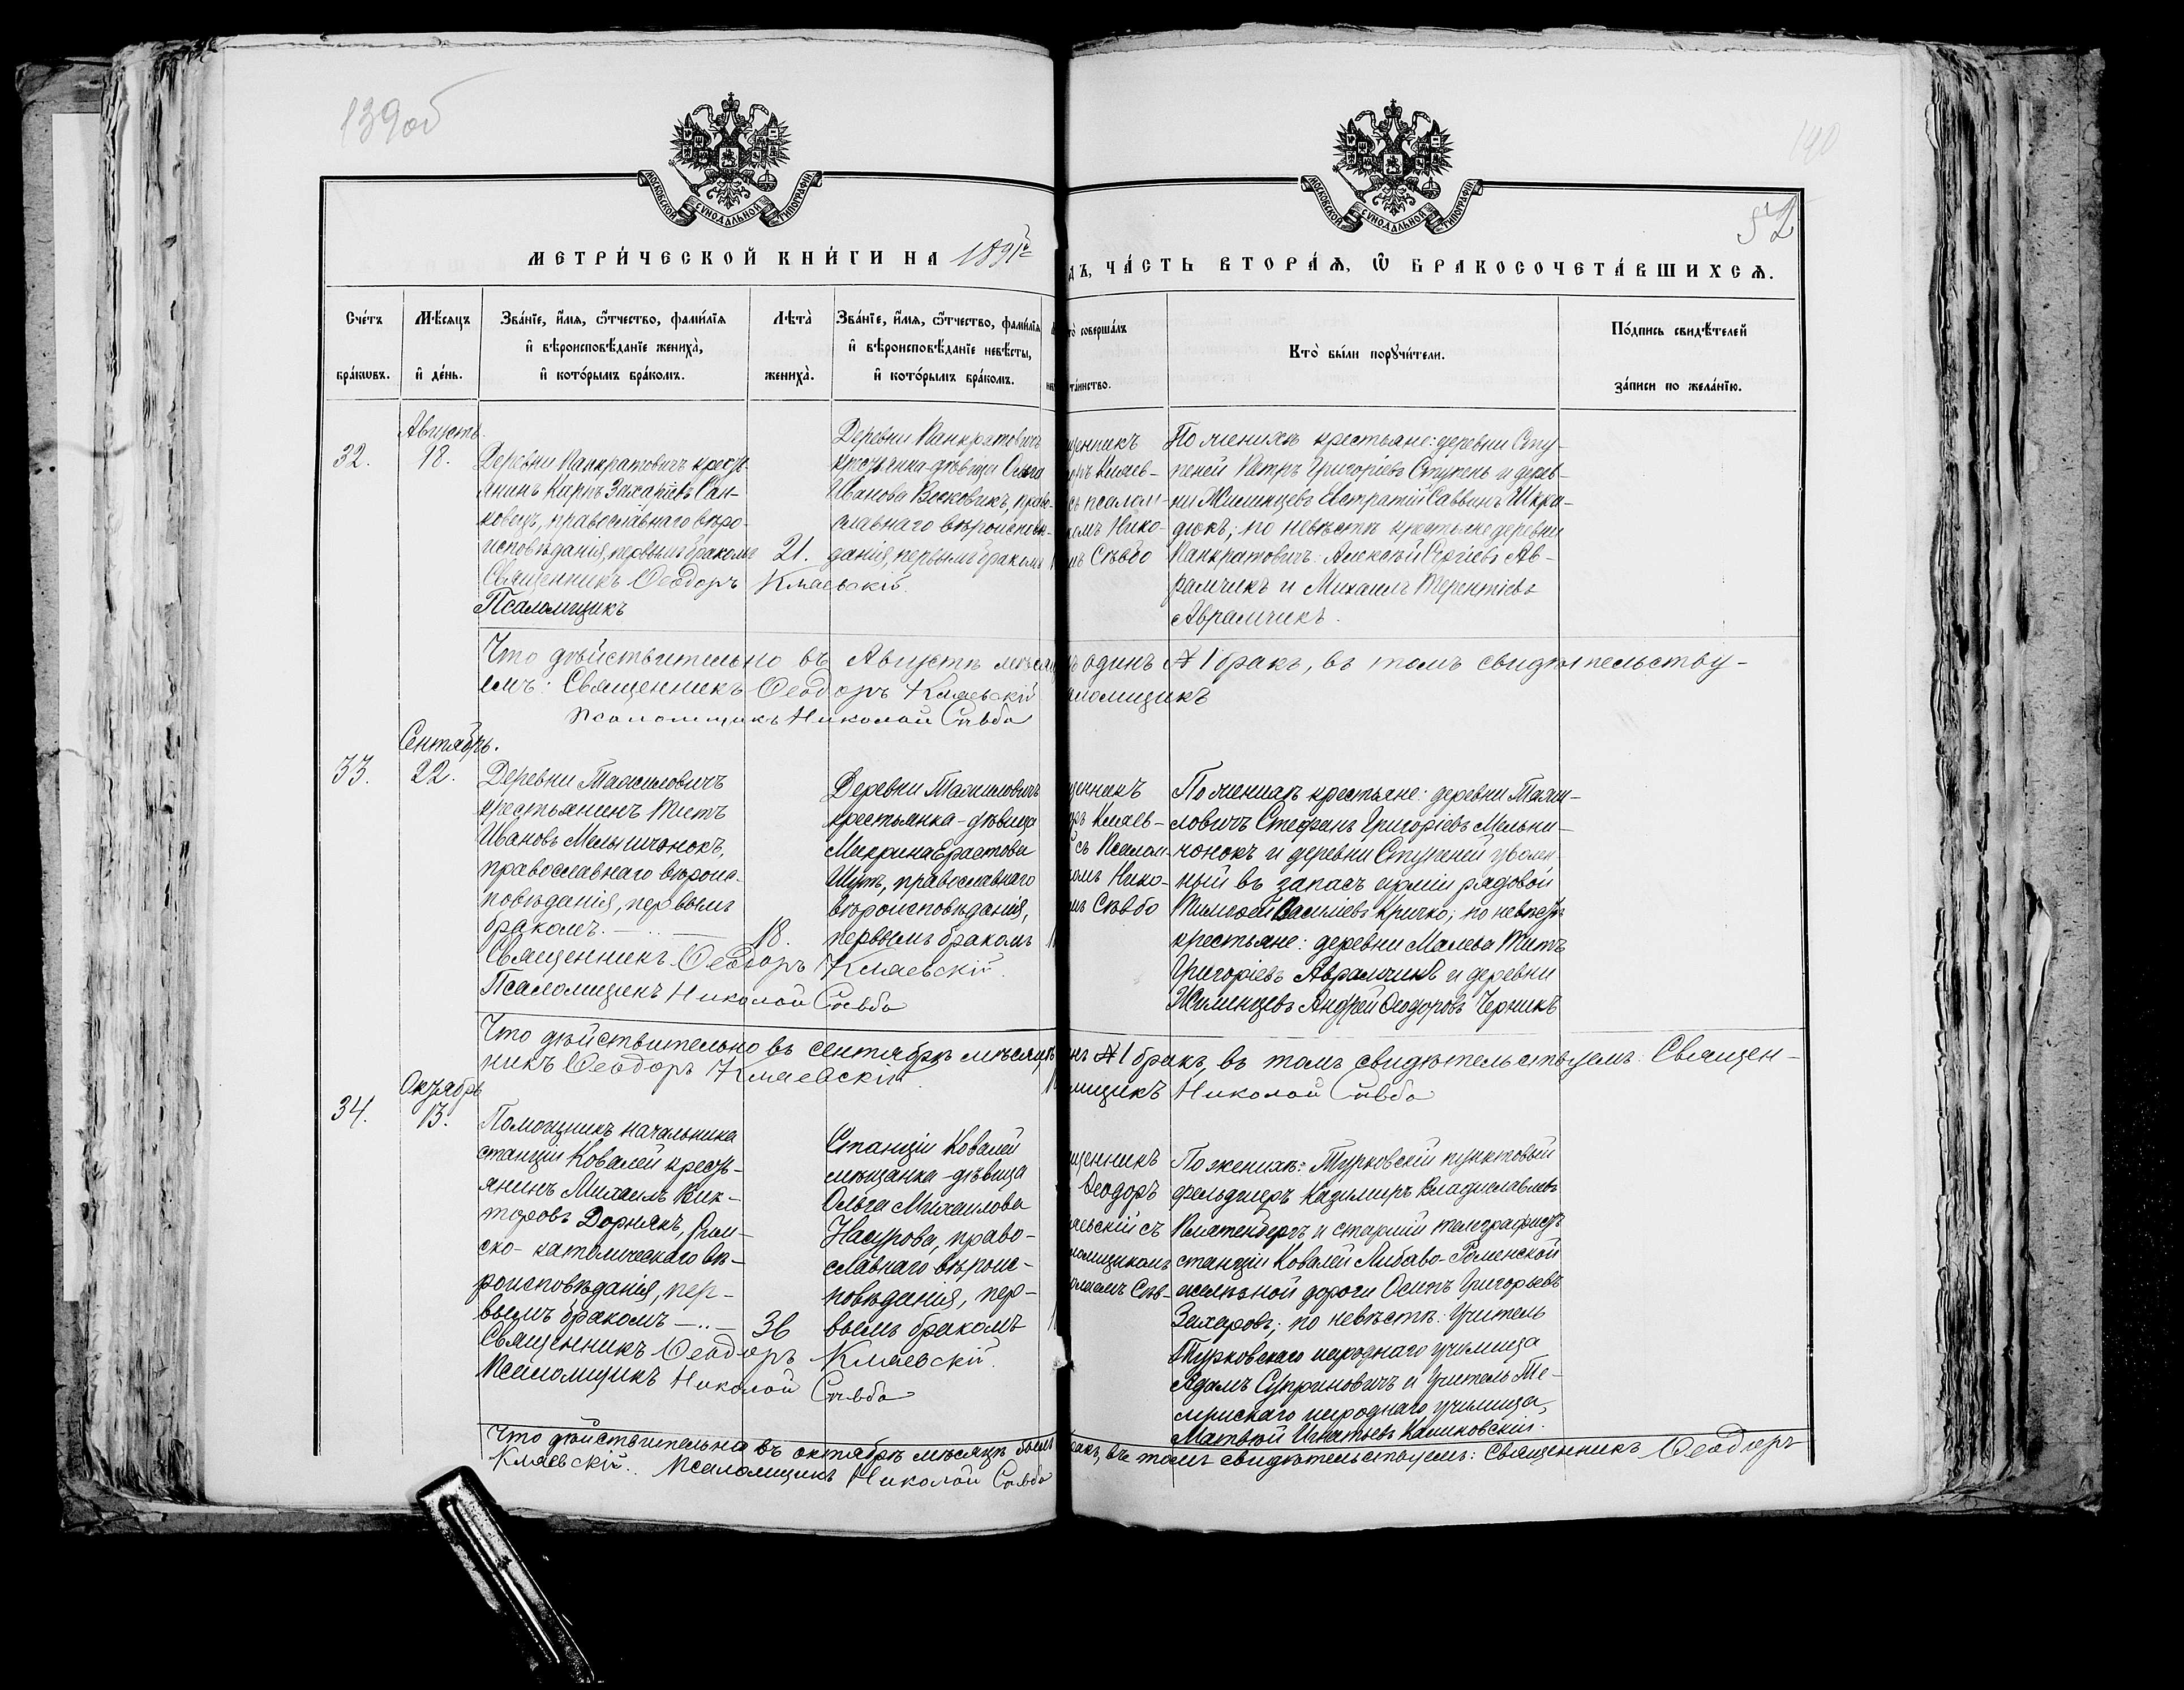 139об
140
52
МОСКОВСКОЙ СѴНОДАЛЬНОЙ ТИПОГРАФІИ
МОСКОВСКОЙ СѴНОДАЛЬНОЙ ТИПОГРАФІИ
МЕТРИ́ЧЕСКОЙ КНИ́ГИ НА 1891й
дъ, ЧА́СТЬ ВТОРА́Ѧ, Ѽ БРАКОСОЧЕТА́ВШИХСѦ.
Сче́тъ бра́кѡвъ.
Мѣ́сяцъ и҆ де́нь.
Зва́нїе, и҆́мя, ѻ҆́тчество, фами́лїя
и҆ вѣроисповѣ́данїе жениха̀,
и҆ кото́рымъ бра́комъ.
Лѣ́та̀
жениха̀.
Зва́нїе, и҆́мя, ѻ҆́тчество, фами́лїя
и҆ вѣроисповѣ́данїе невѣ́сты,
и҆ кото́рымъ бра́комъ.
то̀ соверша́лъ
та́инство.
Кто̀ бы́ли порꙋчи́тели.
По́дпись свидѣ́телей
за́писи по жела́нїю.
Августъ.
32.
18.
Деревни Панкратовичъ кресть-
янинъ Карпъ Захаріевъ Сан-
ковецъ, православнаго вѣро-
исповѣданія, первымъ бракомъ
21.
Священникъ Ѳеодоръ Кмаевскій.
Псаломщикъ
Деревни Панкратовичъ
крестьянка-дѣвица Ольга
Иванова Восковикъ, право-
славнаго вѣроисповѣ-
данія, первымъ бракомъ
щенникъ
оръ Кмаев-
съ псалом-
комъ Нико-
мъ Сѣвбо
По женихѣ крестьяне: деревни Сту-
пеней Петръ Григоріевъ Ступень и дерев-
ни Жилинцевъ Евстратій Саввинъ Шкра-
дюкъ; по невѣстѣ крестьяне деревни
Панкратовичъ: Алексѣй Сергіевъ Ав-
рамчикъ и Михаилъ Терентіевъ
Аврамчикъ.
Что дѣйствительно въ Августѣ мѣсяц
одинъ № 1 бракъ, въ томъ свидѣтельству-
емъ: Священникъ Ѳеодоръ Кмаевскій
ломщикъ
Псаломщикъ Николай Сѣвбо
Сентябрь.
33.
22.
Деревни Тажиловичъ
крестьянинъ Титъ
Ивановъ Мельничонокъ,
православнаго вѣроис-
повѣданія, первымъ
бракомъ.
18.
Священникъ Ѳеодоръ Кмаевскій.
Псаломщикъ Николай Сѣвбо
Деревни Тажиловичъ
крестьянка-дѣвица
Макрина Ерастова
Шутъ, православнаго
вѣроисповѣданія,
первымъ бракомъ
щенникъ
Кмаев-
съ Псалом-
комъ Нико-
мъ Сѣвбо
По женихѣ крестьяне: деревни Тажи-
ловичъ Стефанъ Григоріевъ Мельни-
чонокъ и деревни Ступеней уволен-
ный въ запасъ арміи рядовой
Тимофей Василіевъ Кричко; по невѣстѣ
крестьяне: деревни Малева Титъ
Григоріевъ Аврамчикъ и деревни
Жилинцевъ Андрей Ѳеодоровъ Черникъ
Что дѣйствительно въ сентябрѣ мѣсяцѣ
нъ № 1 бракъ, въ томъ свидѣтельствуемъ: Священ-
никъ Ѳеодоръ Кмаевскій.
мщикъ Николай Сѣвбо
Октябрь
34.
13.
Помощникъ начальника
станціи Ковалей кресть-
янинъ Михаилъ Вик-
торовъ Дорнякъ, рим-
ско-католическаго вѣ-
роисповѣданія, пер-
вымъ бракомъ
36
Священникъ Ѳеодоръ Кмаевскій.
Псаломщикъ Николай Сѣвбо
Станціи Ковалей
мѣщанка-дѣвица
Ольга Михаилова
Насурова, право-
славнаго вѣроис-
повѣданія, пер-
вымъ бракомъ
щенникъ
Ѳеодоръ
маевскій съ
ломщикомъ
олаемъ Сѣв-
По женихѣ: Турковскій пунктовый
фельдшеръ Казимиръ Владиславлевъ
Платенбергъ и старшій телеграфистъ
станціи Ковалей Либаво-Роменской
желѣзной дороги Осипъ Григорьевъ
Захаровъ; по невѣстѣ: Учитель
Турковскаго народнаго училища
Адамъ Суприновичъ и Учитель Те-
народнаго училища,
Матвѣй Игнатьевъ Калиновскій.
Что дѣйствительно въ октябрѣ мѣсяцѣ былъ
бракъ, въ томъ свидѣтельствуемъ: Священникъ Ѳеодоръ
Кмаевскій. Псаломщикъ Николай Сѣвбо